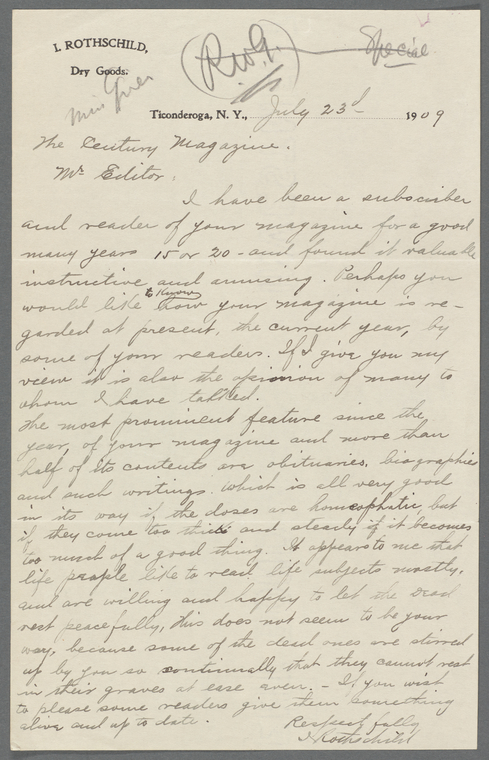 I. ROTHSCHILD,
Dry Goods.
R.W.G.
Special
Miss
Ticonderoga, N. Y., July 23d 1909
The Century Magazine.
Mr Editor:
I have been a subscriber
and reader of your magazine for a good
many years 15 or 20 - and found it valuable
instructive and amusing. Perhaps you
would like to know how your magazine is re-
garded at present, the current year, by
some of your readers. If I give you my
view it is also the opinion of many to
whom I have talked.
The most prominent feature since the
year, of your magazine and more than
half of its contents are obituaries, biographies
and such writings. Which is all very good
in its way if the doses are homeophatic, but
if they come too thick and steady if it becomes
too much of a good thing. It appears to me that
life people like to read life subjects mostly,
and are willing and happy to let the Dead
rest peacefully, this does not seem to be your
way, because some of the dead ones are stirred
up by you so continually that they cannot rest
in their graves at ease ever. - If you wish
to please some readers give them something
alive and up to date.
Respectfully
I Rothschild